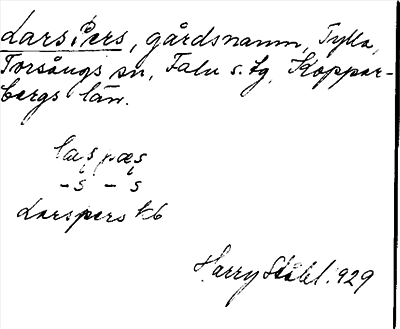 Lars Pers, gårdsnamn, Tylla,
Torsångs sn, Falu s. tg, Koppar-
bergs län.
las pæs
– s – s
Larspers kb
Harry Ståhl. 1929